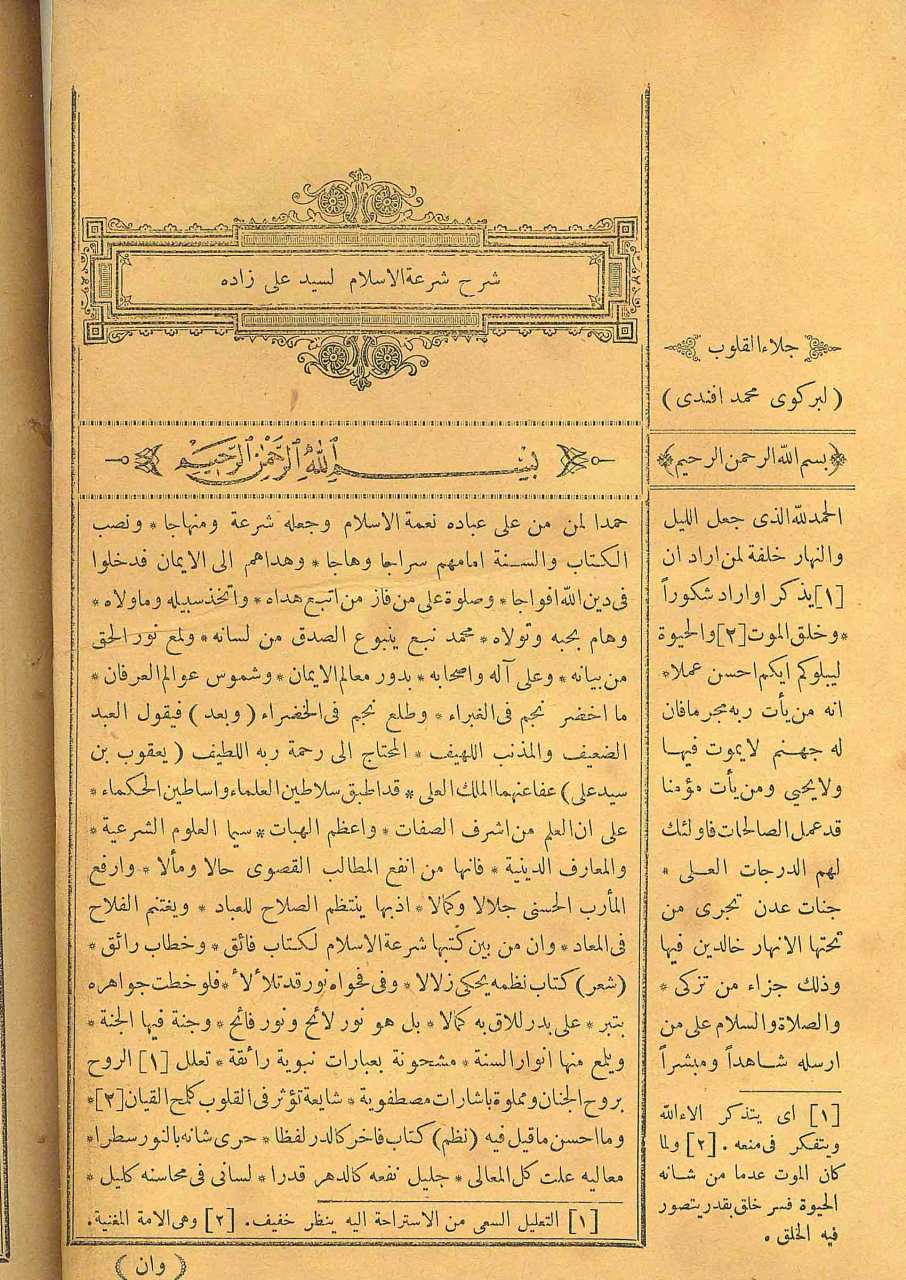 شرح شرعة الاسلام لسيد على زاده
بسم الله الرحمن الرحيم
حمدا لمن من على عباده نعمة الاسلام وجعله شرعة ومنهاجا * ونصب
الكتاب والسنة امامهم سراجا وهاجا * وهداهم الى الايمان فدخلوا
فى دين الله افواجا * وصلوة على من فاز من اتبع هداه * واتخذ سبيله وماولاه *
وهام بحبه وتولاه * محمد نبع ينبوع الصدق من لسانه * ولمع نور الحق
من بيانه * وعلى آله واصحابه * بدور معالم الايمان * وشموس عوالم العرفان *
ما اخضر نجم فى الغبراء * وطلع نجم فى الخضراء ( وبعد ) فيقول العبد
الضعيف والمذنب اللهيف * المحتاج الى رحمة ربه اللطيف ( يعقوب بن
سيد على ) عفا عنهما الملك العلى * قد اطبق سلاطين العلماء واساطين الحكماء *
على ان العلم من اشرف الصفات * واعظم الهبات * سيما العلوم الشرعية *
والمعارف الدينية * فانها من انفع المطالب القصوى حالا ومألا * وارفع
المأرب الحسنى جلالا وكمالا * اذبها ينتظم الصلاح للعباد * ويغتنم الفلاح
فى المعاد * وان من بين كتبها شرعة الاسلام لكتاب فائق * وخطاب رائق *
(شعر) كتاب نظمه يحكى زلالا * وفى فحواه نور قد تلألأ * فلو خطت جواهره
بتبر * على بدر للاق به كمالا * بل هو نور لائح ونور فائح * وجنة فيها الجنة *
ويلمع منها انوار السنة * مشحونة بعبارات نبوية رائقة * تعلل [١] الروح
بروح الجنان ومملوة باشارات مصطفوية * شايعة تؤثر فى القلوب كلمح القيان [٢] *
وما احسن ما قيل فيه (نظم) كتاب فاخر كالدر لفظا * حرى شانه بالنور سطرا *
معاليه علت كل المعالى * جليل نفعه كالدهر قدرا * لسانى فى محاسنه كليل *
[١] التعليل السعى من الاستراحة اليه ينظر خفيف . [٢] وهى الامة المغنية .
( وان )
جلاء القلوب
( لبركوى محمد افندى )
بسم الله الرحمن الرحيم
الحمد لله الذى جعل الليل
والنهار خلفة لمن اراد ان
[١] يذكر او اراد شكوراً
* وخلق الموت [٢] والحيوة
ليبلوكم ايكم احسن عملا *
انه من يأت ربه مجرما فان
له جهنم لا يموت فيها
ولا يحيى ومن يأت مؤمنا
قد عمل الصالحات فاولئك
لهم الدرجات العلى *
جنات عدن تجرى من
تحتها الانهار خالدين فيها
وذلك جزاء من تزكى *
والصلاة والسلام على من
ارسله شاهداً ومبشراً
[١] اى يتذكر الاء الله
ويتفكر فى منعه . [٢] ولما
كان الموت عدما من شانه
الحيوة فسر خلق بقدر يتصور
فيه الخلق .